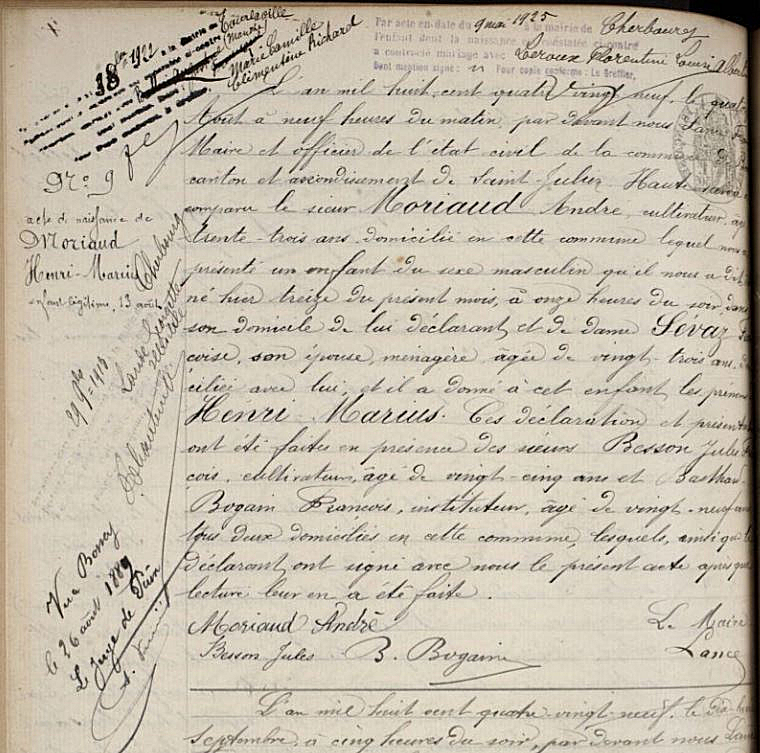 18 1922 à la Mairie de Tourlaville
(Manche)
Marie Camille
Clémentine Richard
Par acte en date du 9 mai 1925 à la mairie de Cherbourg
l'enfant dont la naissance est constatée ci-contre
a contracté mariage avec Leroux Florentine Louise
Dont mention signé : Pour copie conforme : Le Greffier,
N° 9
acte de naissance de
Moriaud
Henri-Marius
enfant légitime, 13 août
Cherbourg
Louise
29 9bre 1913
Vu à Bonne
le 26 août 1889
Le Juge de Paix
L'an mil huit cent quatre vingt neuf, le quat
Août à neuf heures du matin par devant nous
Maire et officier de l'état civil de la commune de
canton et arrondissement de Saint-Julien Haute Savoie
comparu le sieur Moriaud André, cultivateur, âg
trente-trois ans domicilié en cette commune lequel nous
présenté un enfant du sexe masculin qu'il nous a dit
né hier treize du présent mois, à onze heures du soir, dans
son domicile de lui déclarant et de dame Sévaz
coise, son épouse, ménagère âgée de vingt-trois ans, do
ciliée avec lui, et il a donné à cet enfant les prénoms
Henri-Marius. Ces déclaration et présenta
ont été faites en présence des sieurs Besson Jules
cois, cultivateur, âgé de vingt-cinq ans et
Bogain François, instituteur, âgé de vingt-neuf ans
tous deux domiciliés en cette commune, lesquels, ainsi que le
déclarant, ont signé avec nous le présent acte après que
lecture leur en a été faite.
Moriaud André Le Maire
Besson Jules B. Bogain Lance
L'an mil huit cent quatre-vingt-neuf, le dix-hui
Septembre, à cinq heures du soir, par devant nous